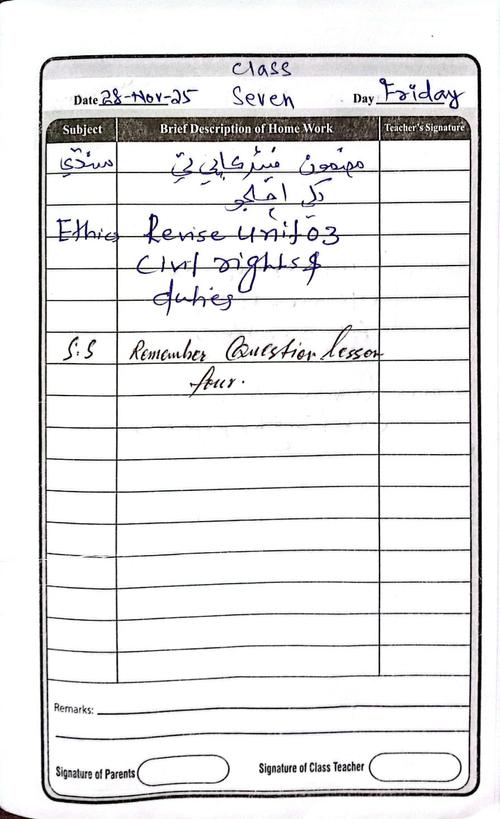 Class
Date 28-Nov-25 Seven Day Friday
Subject Brief Description of Home Work Teacher's Signature
سنڌي مضمون فيئر ڪاپي تي
لکي اچجو
Ethics Revise unit 03
Civil rights &
duties
S.S Remember Question lesson
four.
Remarks:
Signature of Parents Signature of Class Teacher